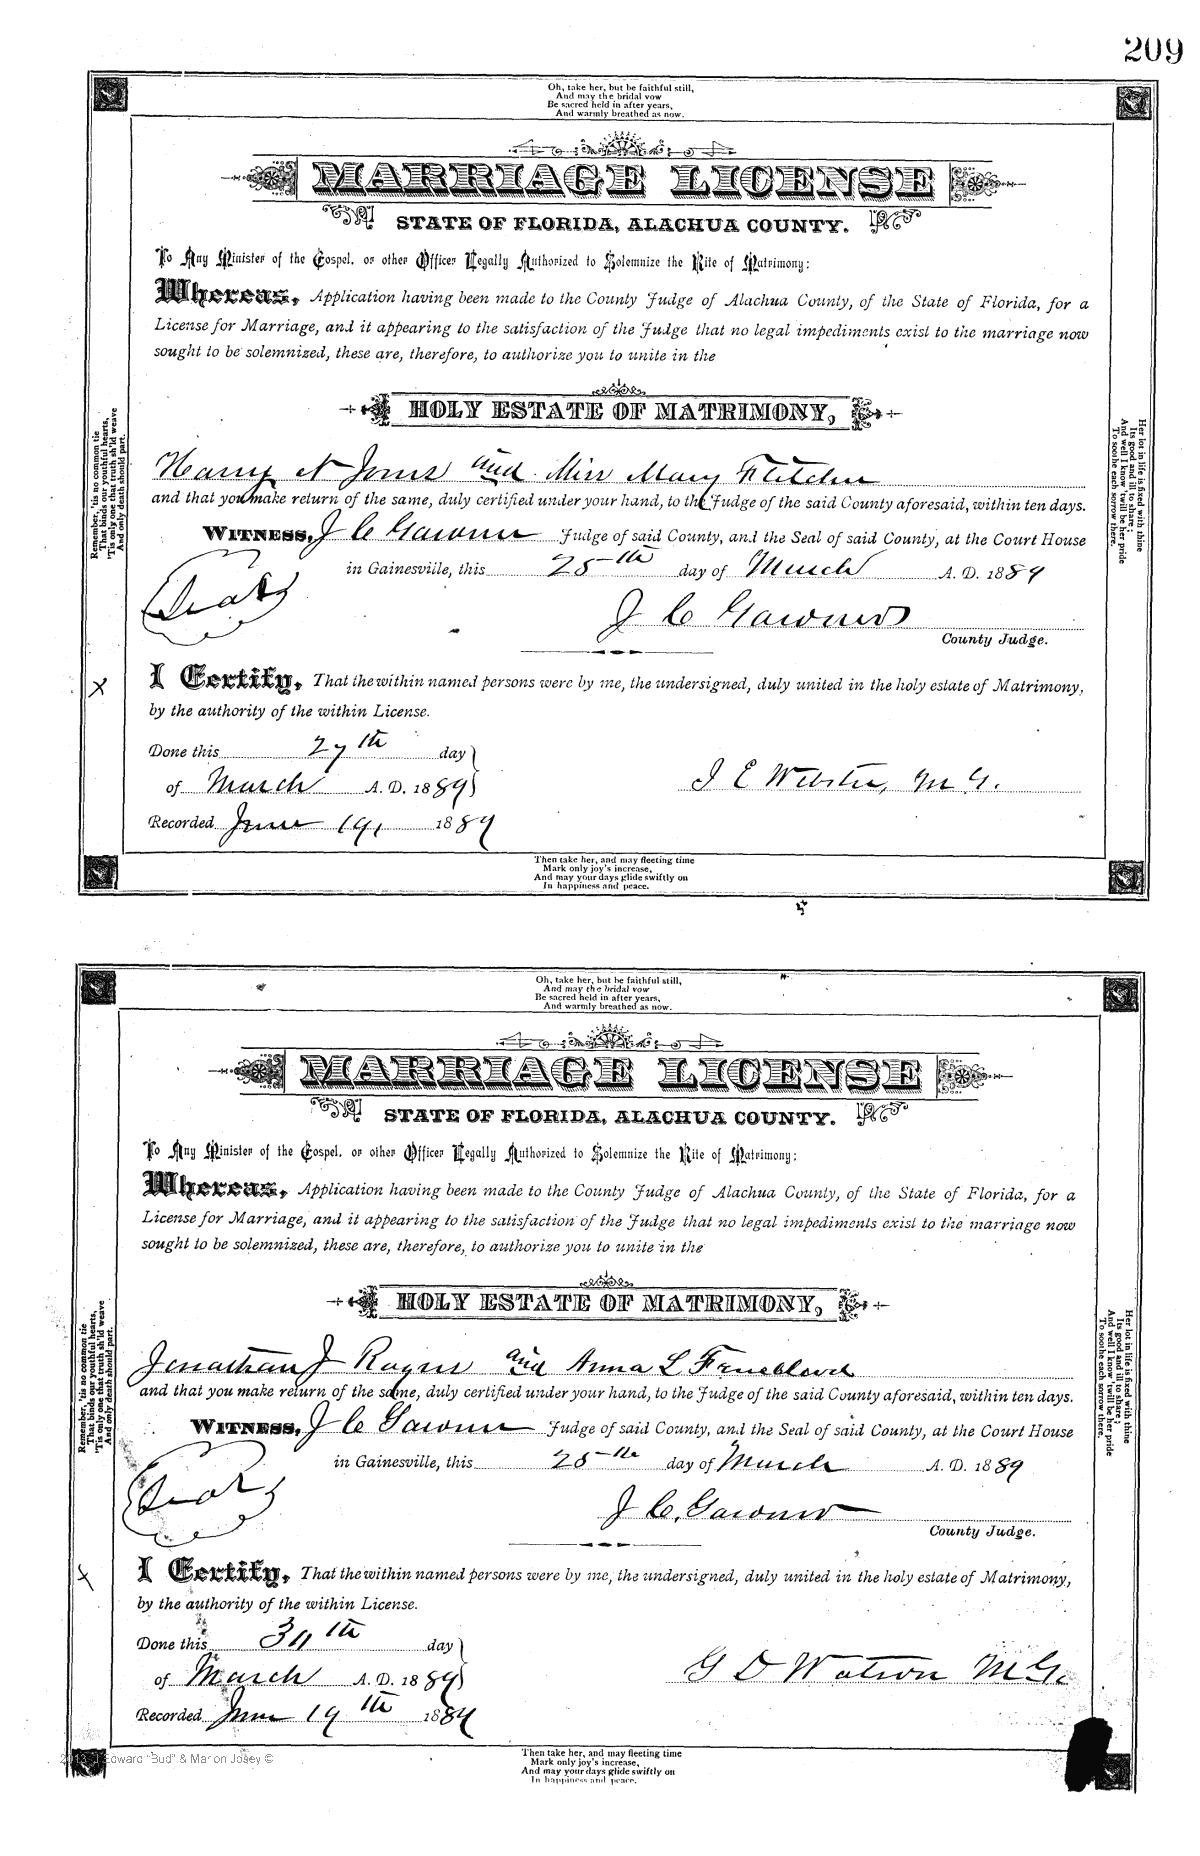 209
Oh, take her, but be faithful still,
And may the bridal vow
Be sacred held in after years,
And warmly breathed as now.
MARRIAGE LICENSE
STATE OF FLORIDA, ALACHUA COUNTY.
To Any Minister of the Gospel, or other Officer Legally Authorized to Solemnize the Rite of Matrimony:
Whereas, Application having been made to the County Judge of Alachua County, of the State of Florida, for a
License for Marriage, and it appearing to the satisfaction of the Judge that no legal impediments exist to the marriage now
sought to be solemnized, these are, therefore, to authorize you to unite in the
HOLY ESTATE OF MATRIMONY,
Harry N Jones and Miss Mary Fletcher
and that you make return of the same, duly certified under your hand, to the Judge of the said County aforesaid, within ten days.
WITNESS, J C Gardner Judge of said County, and the Seal of said County, at the Court House
in Gainesville, this 25th day of March A. D. 1889
Seal
J C Gardner
County Judge.
X
I Certify, That the within named persons were by me, the undersigned, duly united in the holy estate of Matrimony,
by the authority of the within License.
Done this 27th day
of March A. D. 1889
J E Webster, M G.
Recorded June 19, 1889
Then take her, and may fleeting time
Mark only joy's increase,
And may your days glide swiftly on
In happiness and peace.
Remember, 'tis no common tie
That binds our youthful hearts,
'Tis only one that truth sh'ld weave
And only death should part.
Her lot in life is fixed with thine
Its good and ill to share;
And well I know 'twill be her pride
To soothe each sorrow there.
Oh, take her, but be faithful still,
And may the bridal vow
Be sacred held in after years,
And warmly breathed as now.
MARRIAGE LICENSE
STATE OF FLORIDA, ALACHUA COUNTY.
To Any Minister of the Gospel, or other Officer Legally Authorized to Solemnize the Rite of Matrimony:
Whereas, Application having been made to the County Judge of Alachua County, of the State of Florida, for a
License for Marriage, and it appearing to the satisfaction of the Judge that no legal impediments exist to the marriage now
sought to be solemnized, these are, therefore, to authorize you to unite in the
HOLY ESTATE OF MATRIMONY,
Jonathan J and Anna L
and that you make return of the same, duly certified under your hand, to the Judge of the said County aforesaid, within ten days.
WITNESS, J C Gardner Judge of said County, and the Seal of said County, at the Court House
in Gainesville, this 25th day of March A. D. 1889
Seal
J C, Gardner
County Judge.
X
I Certify, That the within named persons were by me, the undersigned, duly united in the holy estate of Matrimony,
by the authority of the within License.
Done this 30th day
of March A. D. 1889
G D Watson M G.
Recorded June 19th 1889
Then take her, and may fleeting time
Mark only joy's increase,
And may your days glide swiftly on
In happiness and peace.
Remember, 'tis no common tie
That binds our youthful hearts,
'Tis only one that truth sh'ld weave
And only death should part.
Her lot in life is fixed with thine
Its good and ill to share;
And well I know 'twill be her pride
To soothe each sorrow there.
Edward "Bud" & Marion Josey ©